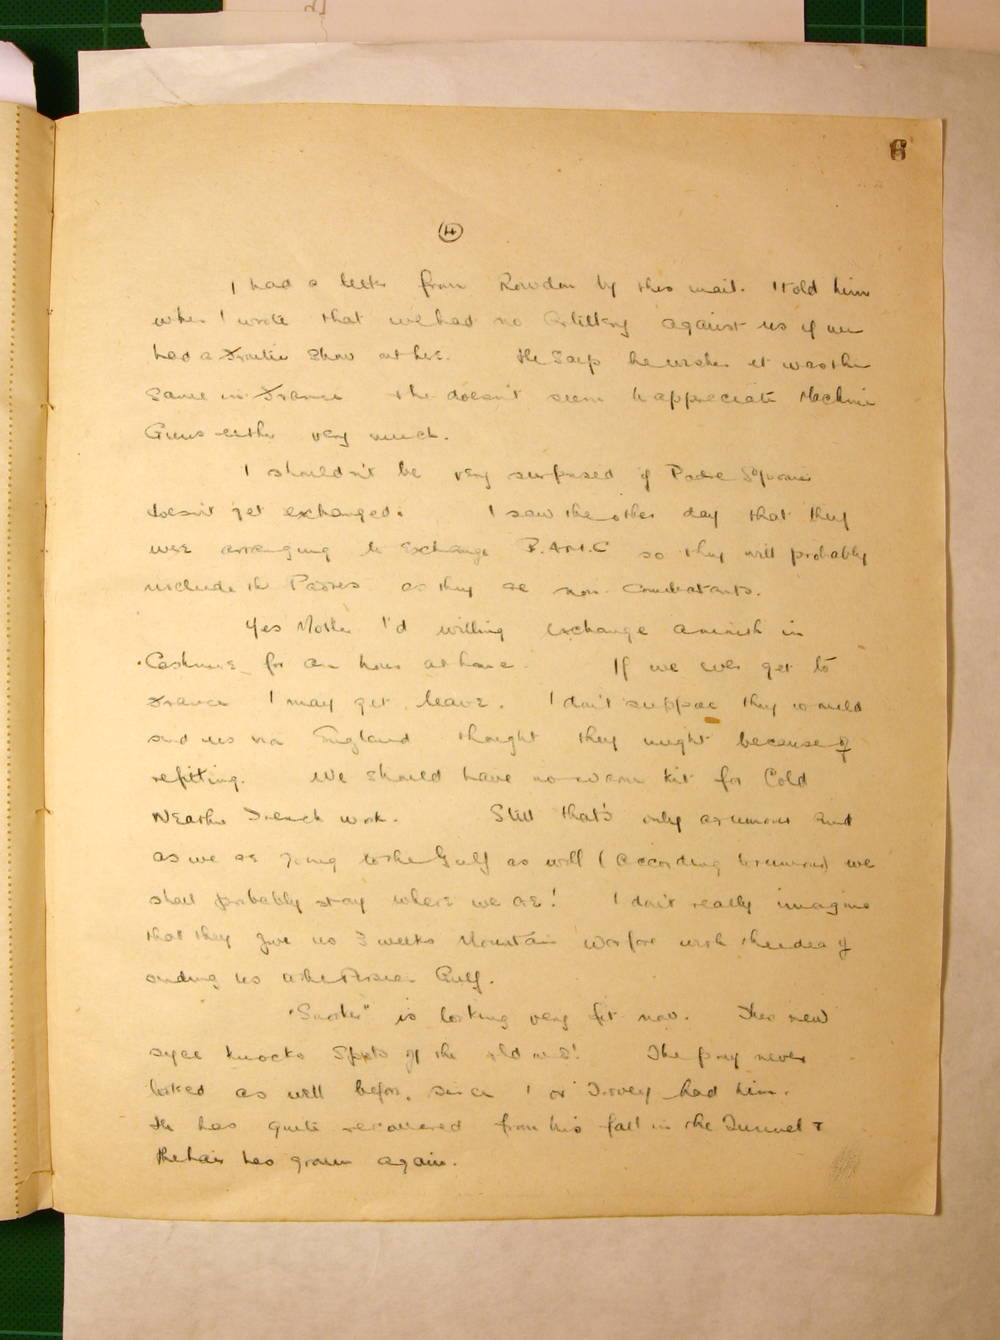 6
4
I had a letter from Rowdon by this mail. I told him
when I wrote that we had no Artillery against us if we
had a Frontier Show out here. He says he wishes it was the
same in France & he doesn't seem to appreciate Machine
Guns either very much.
I shouldn't be very surprised if Padre
doesn't get exchanged. I saw the other day that they
were arranging to exchange R.A.M.C so they will probably
include the Padres as they are non combatants.
Yes Mother I'd willing exchange a month in
Cashmere for an hour at home. If we ever get to
France I may get leave. I don't suppose they would
send us via England thought they might because of
refitting. We should have no warm kit for Cold
Weather Trench work. Still that's only a rumour and
as we are going to the Gulf as well (according to rumour) we
shall probably stay where we are! I don't really imagine
that they give us 3 weeks Mountain Warfare with the idea of
sending us to the Persian Gulf.
is looking very fit now. This new
syce knocks spots off the old one! The pony never
looked as well before, since I or had him.
He has quite recovered from his fall in the Tunnel &
the hair has grown again.